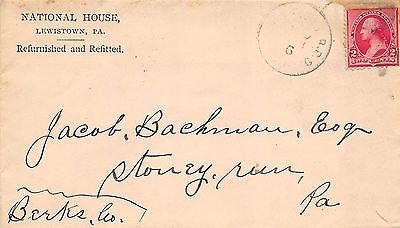 NATIONAL HOUSE,
LEWISTOWN, PA.
Refurnished and Refitted.
2 2
Jacob, Bachman, Esq
Stoney, run,
Pa
Berks, Co.